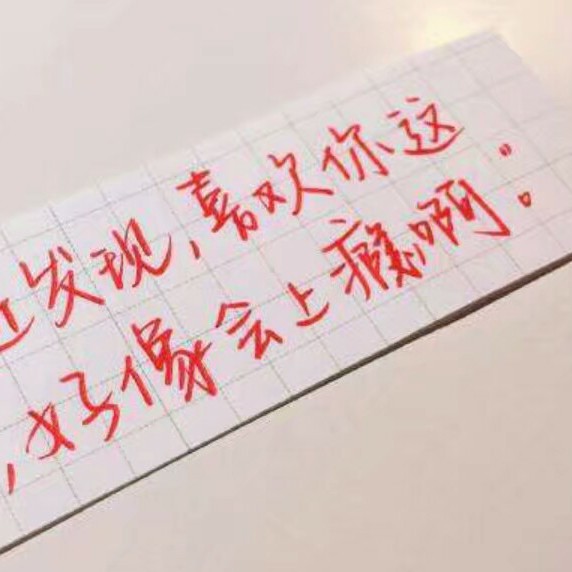 发现,喜欢你这
,好像会上瘾啊。